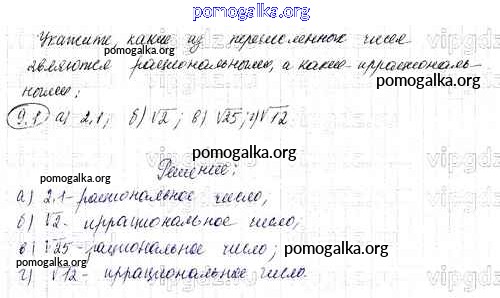 pomogalka.org
Укажите, какие из перечисленных чисел
pomogalka.org
являются рациональными, а какие иррациональ-
ными:
pomogalka.org
9.1 а) 2,1; б) √2; в) √25; г) √12.
pomogalka.org
Решение:
а) 2,1-рациональное число;
pomogalka.org
б) √2- иррациональное число;
в) √25-рациональное число;
pomogalka.org
г) √12- иррациональное число.